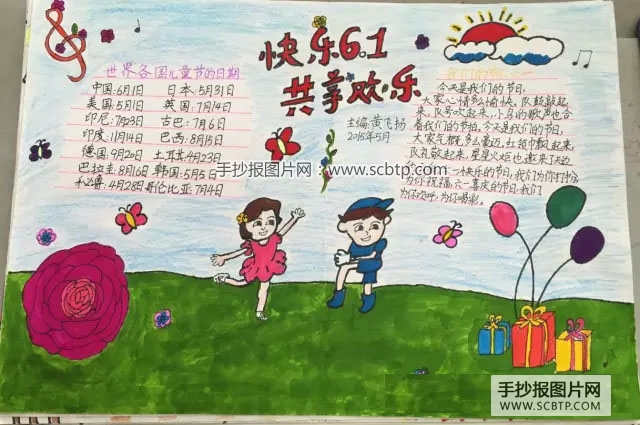 快乐6.1
共享欢乐
主编:黄飞扬
2015年5月
世界各国儿童节的日期
中国:6月1日 日本:5月31日
美国:5月1日 英国:7月14日
印尼:7月23日 古巴:7月6日
印度:11月14日 巴西:8月15日
德国:9月20日 土耳其4月23日
巴拉圭8月16日 韩国:5月5日
4月28日哥伦比亚:7月4日
我们的节日
今天是我们的节日,
大家心情多么愉快,队鼓敲起
来,队号吹起来,小鸟的歌声也
着我们的节日。今天是我们的节日,
大家气概多么豪迈,红领巾飘起来,
队礼敬起来,星星火炬
快乐的节日,我们为你
为你祝福,六一喜庆的节日,我们
为你欢呼,为你喝彩。
手抄报图片网 www.scbtp.com
手抄报图片网
WWW.SCBTP.COM